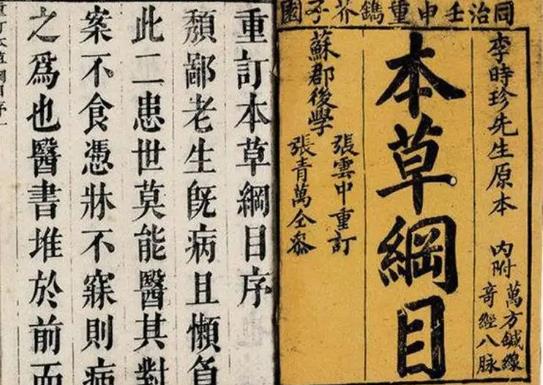 同治壬申重鐫芥子園
李時珍先生原本
內附
萬方鍼線
奇經八脉
本草綱目
張雲中重訂
蘇郡後學
張青萬仝參
重訂本草綱目序
頽鄙老生旣病且懶負
此二患世莫能醫其對
案不食憑牀不寐則病
之爲也醫書堆於前而